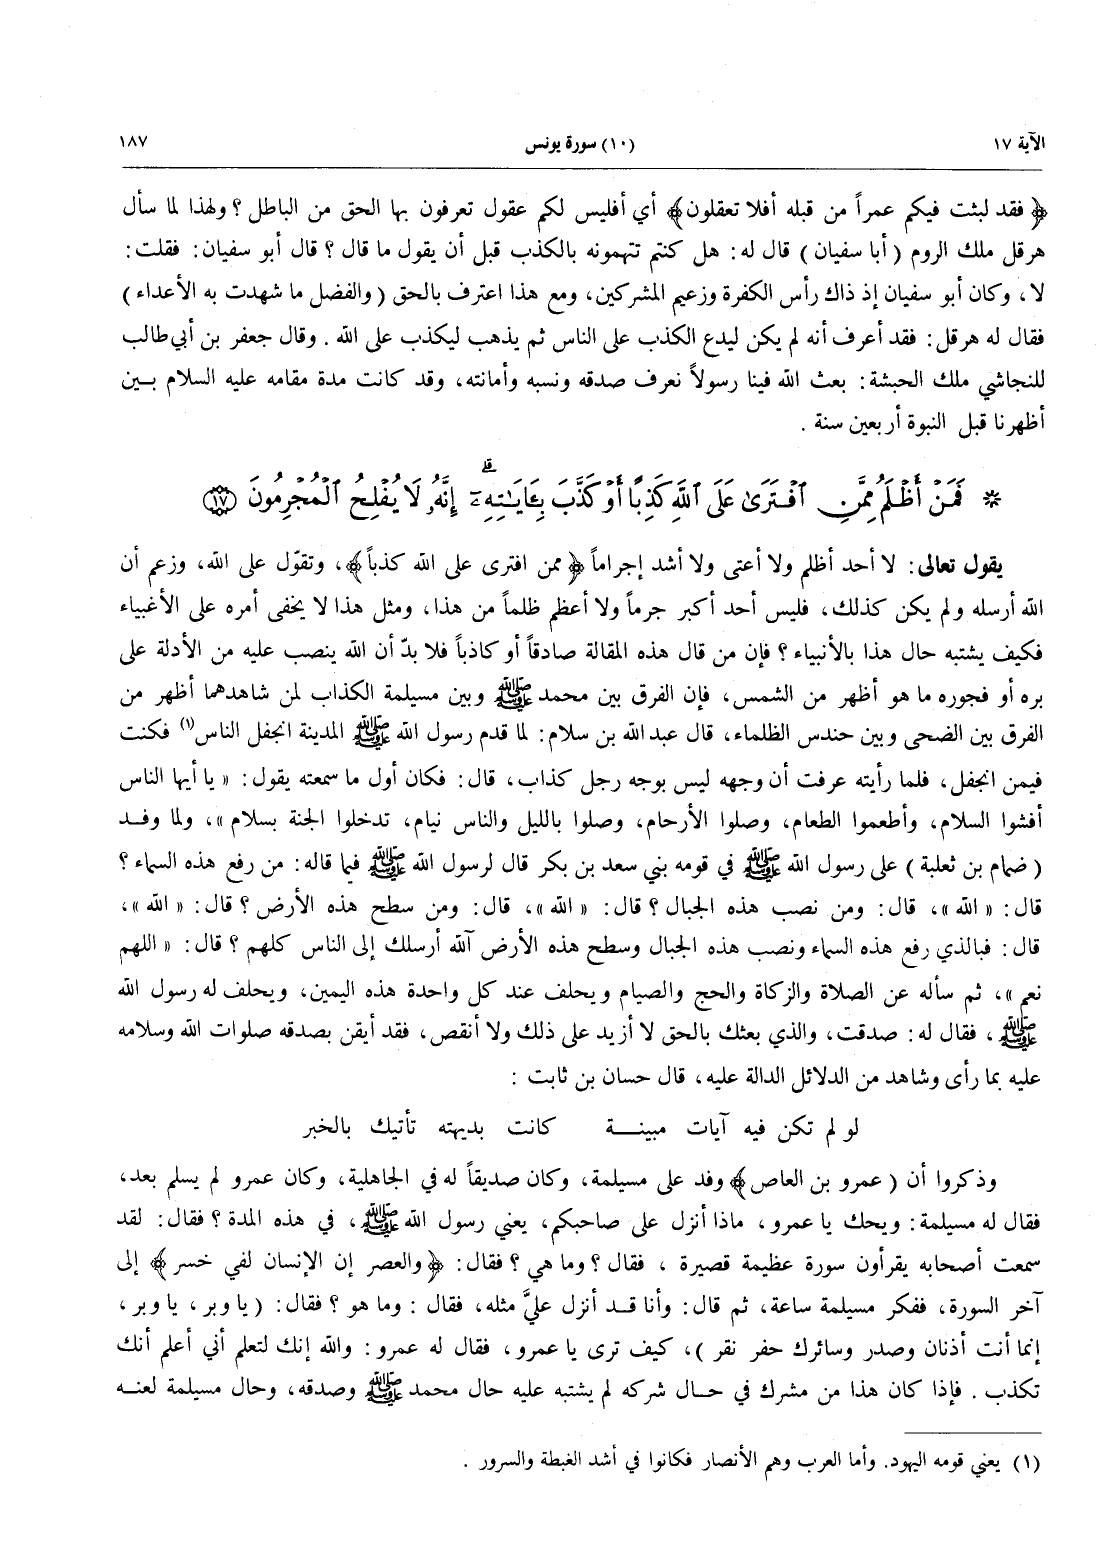 الآية ١٧ (١٠) سورة يونس ١٨٧
﴿ فقد لبثت فيكم عمراً من قبله أفلا تعقلون﴾ أي أفليس لكم عقول تعرفون بها الحق من الباطل ؟ ولهذا لما سأل
هرقل ملك الروم ( أبا سفيان ) قال له : هل كنتم تتهمونه بالكذب قبل أن يقول ما قال ؟ قال أبو سفيان : فقلت :
لا ، وكان أبو سفيان إذ ذاك رأس الكفرة وزعيم المشركين ، ومع هذا اعترف بالحق ( والفضل ما شهدت به الأعداء )
فقال له هرقل : فقد أعرف أنه لم يكن ليدع الكذب على الناس ثم يذهب ليكذب على الله . وقال جعفر بن أبي طالب
للنجاشي ملك الحبشة : بعث الله فينا رسولاً نعرف صدقه ونسبه وأمانته ، وقد كانت مدة مقامه عليه السلام بـين
أظهرنا قبل النبوة أربعين سنة .
* فَمَنْ أَظْلَمُ مِمَّنِ ٱفْتَرَىٰ عَلَى ٱللَّهِ كَذِبًا أَوْ كَذَّبَ بِـَٔايَـٰتِهِۦٓ ۚ إِنَّهُۥ لَا يُفْلِحُ ٱلْمُجْرِمُونَ ﴿١٧﴾
يقول تعالى : لا أحد أظلم ولا أعتى ولا أشد إجراماً ﴿ ممن افترى على الله كذباً﴾ ، وتقوّل على الله ، وزعم أن
الله أرسله ولم يكن كذلك ، فليس أحد أكبر جرماً ولا أعظم ظلماً من هذا ، ومثل هذا لا يخفى أمره على الأغبياء
فكيف يشتبه حال هذا بالأنبياء ؟ فإن من قال هذه المقالة صادقاً أو كاذباً فلا بدّ أن الله ينصب عليه من الأدلة على
بره أو فجوره ما هو أظهر من الشمس ، فإن الفرق بين محمد ﷺ وبين مسيلمة الكذاب لمن شاهدهما أظهر من
الفرق بين الضحى وبين حندس الظلماء ، قال عبد الله بن سلام : لما قدم رسول الله ﷺ المدينة انجفل الناس (١) فكنت
فيمن انجفل ، فلما رأيته عرفت أن وجهه ليس بوجه رجل كذاب ، قال : فكان أول ما سمعته يقول : « يا أيها الناس
أفشوا السلام ، وأطعموا الطعام ، وصلوا الأرحام ، وصلوا بالليل والناس نيام ، تدخلوا الجنة بسلام » ، ولما وفـد
( ضمام بن ثعلبة ) على رسول الله ﷺ في قومه بني سعد بن بكر قال لرسول الله ﷺ فيما قاله : من رفع هذه السماء ؟
قال : « الله » ، قال : ومن نصب هذه الجبال ؟ قال : « الله » ، قال : ومن سطح هذه الأرض ؟ قال : « الله » ،
قال : فبالذي رفع هذه السماء ونصب هذه الجبال وسطح هذه الأرض آلله أرسلك إلى الناس كلهم ؟ قال : « اللهم
نعم » ، ثم سأله عن الصلاة والزكاة والحج والصيام و يحلف عند كل واحدة هذه اليمين ، ويحلف له رسول الله
ﷺ ، فقال له : صدقت ، والذي بعثك بالحق لا أزيد على ذلك ولا أنقص ، فقد أيقن بصدقه صلوات الله وسلامه
عليه بما رأى وشاهد من الدلائل الدالة عليه ، قال حسان بن ثابت :
لو لم تكن فيه آيات مبينـــة كانت بديهته تأتيك بالخبر
وذكروا أن ( عمرو بن العاص ﴾ وفد على مسيلمة ، وكان صديقاً له في الجاهلية ، وكان عمرو لم يسلم بعد ،
فقال له مسيلمة : ويحك يا عمرو ، ماذا أنزل على صاحبكم ، يعني رسول الله ﷺ ، في هذه المدة ؟ فقال : لقد
سمعت أصحابه يقرأون سورة عظيمة قصيرة ، فقال ؟ وما هي ؟ فقال : ﴿ والعصر إن الإنسان لفي خسر ﴾ إلى
آخر السورة ، ففكر مسيلمة ساعة ، ثم قال : وأنا قـد أنزل عليَّ مثله ، فقال : وما هو ؟ فقال : ( يا وبر ، يا وبر ،
إنما أنت أذنان وصدر وسائرك حفر نقر ) ، كيف ترى يا عمرو ، فقال له عمرو : والله إنك لتعلم أني أعلم أنك
تكذب . فإذا كان هذا من مشرك في حـال شركه لم يشتبه عليه حال محمد ﷺ وصدقه ، وحال مسيلمة لعنـه
(١) يعني قومه اليهود. وأما العرب وهم الأنصار فكانوا في أشد الغبطة والسرور .